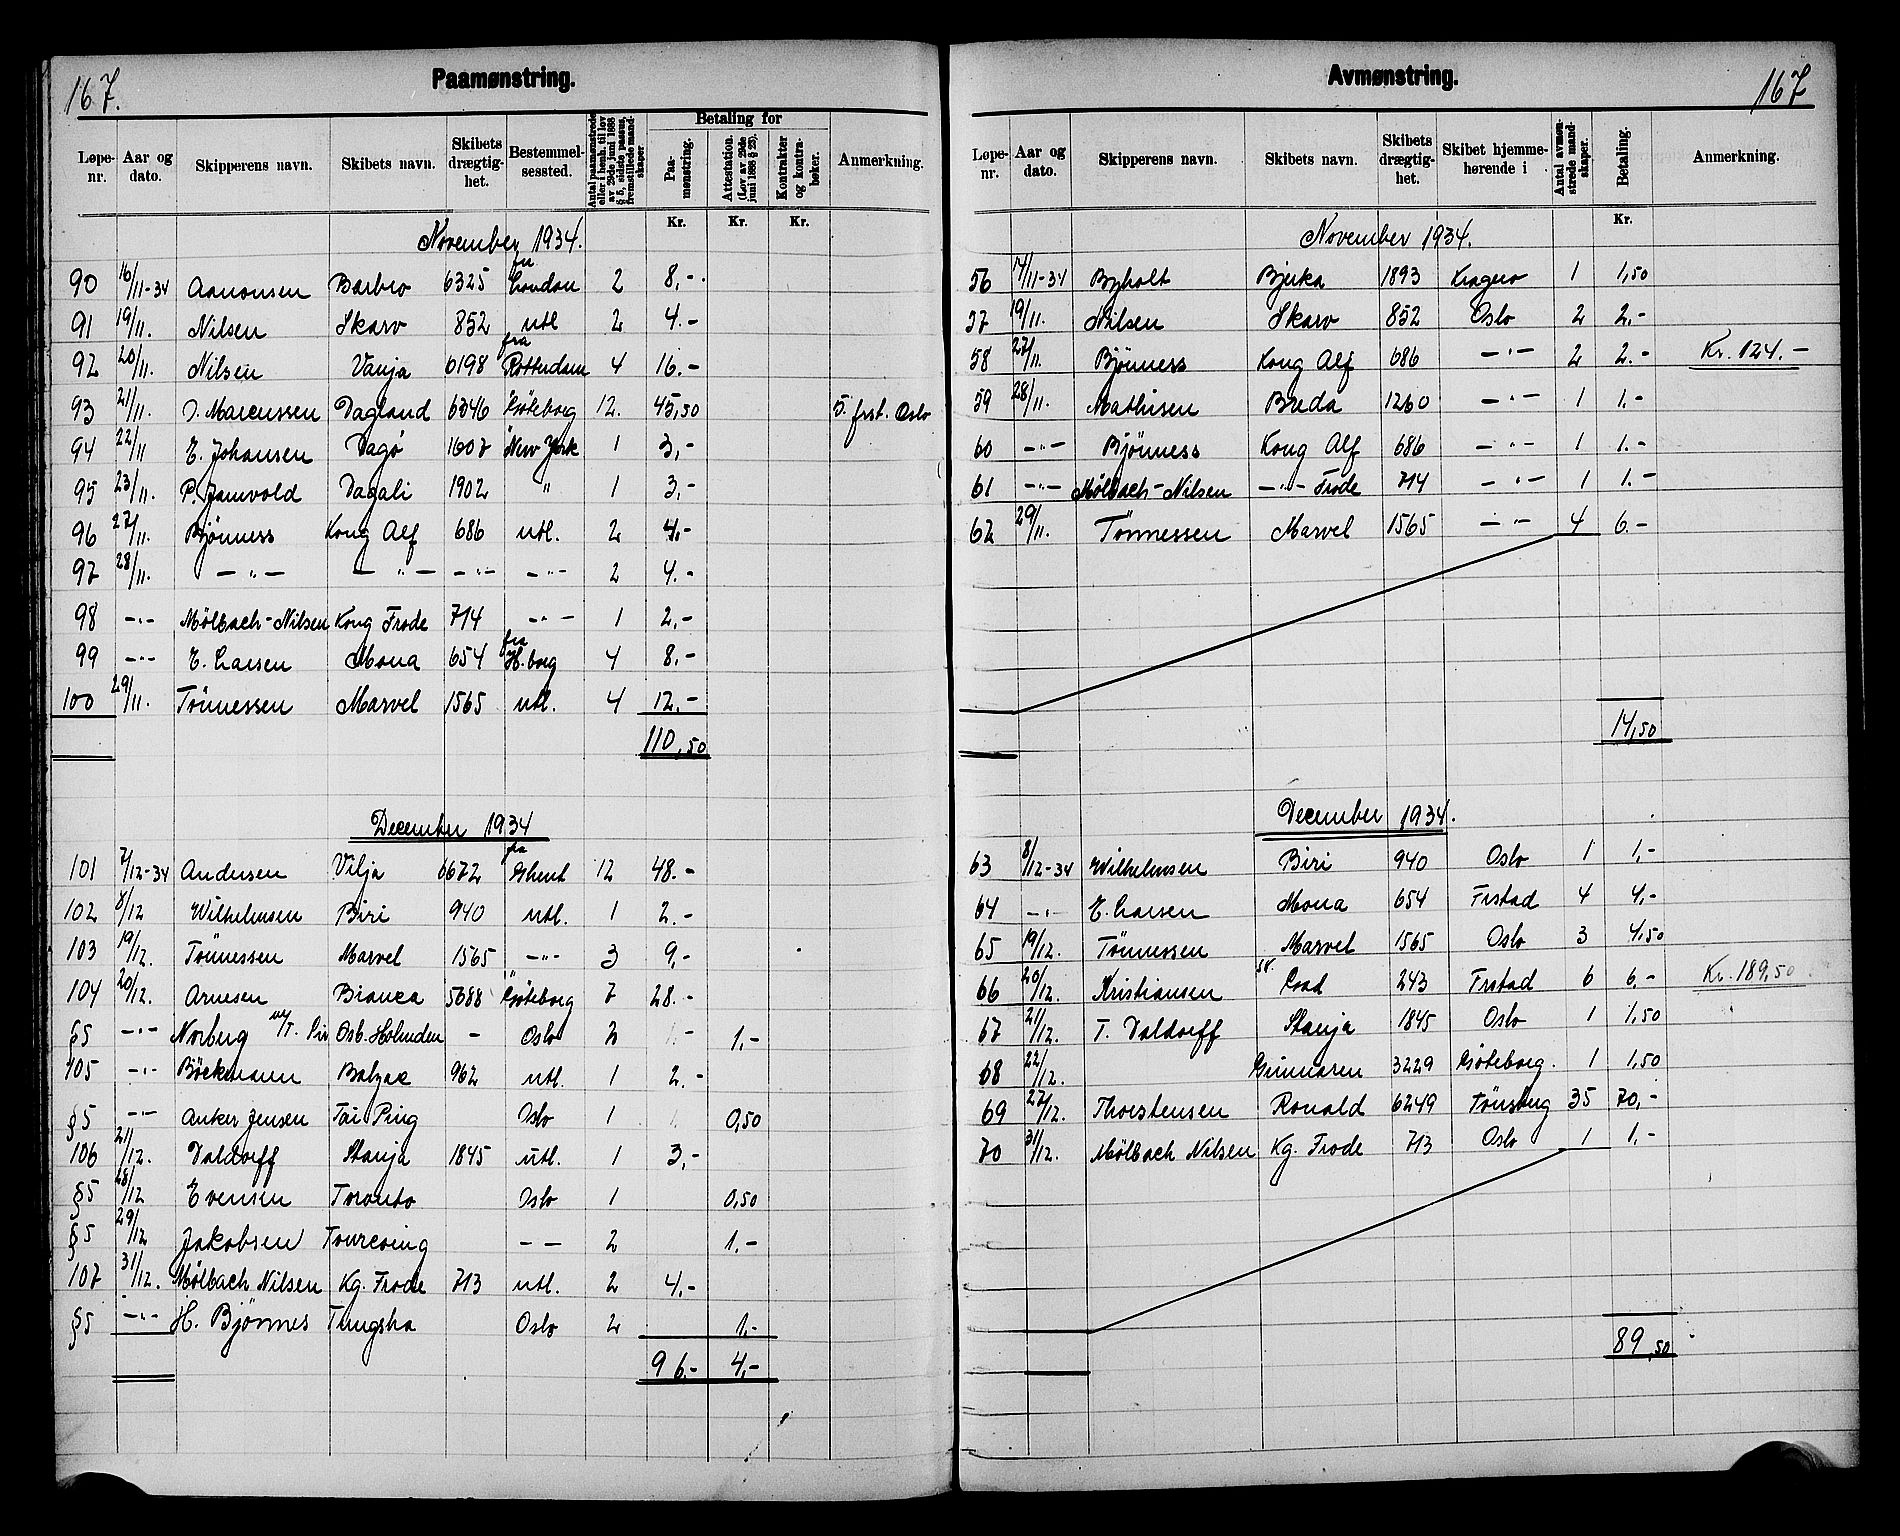 167.
Paamønstring.
Løpe-nr. | Aar og dato. | Skipperens navn. | Skibets navn. | Skibets drægtig-het. | Bestemmel-sessted. | Antal paamønstrede eller i henh. til lov av 29de juni 1888 § 5, sidste passus, fremstillede mand-skaper | Betaling for | Paa-mønstring. | Attestation. (Lov av 29de juni 1888 § 23). | Kontrakter og kontra-bøker. | Anmerkning.
Kr. | Kr. | Kr.
November 1934.
90 | 16/11-34 | Aanonsen | Barbro | 6325 | fra London | 2 | 8,-
91 | 19/11. | Nilsen | Skarv | 852 | utl | 2 | 4.-
92 | 20/11. | Nilsen | Vanja | 6198 | fra Rotterdam | 4 | 16.-
93 | 21/11. | J. Marcussen | Dagland | 6346 | Göteborg | 12. | 45,50 | 5. frst. Oslo
94 | 22/11 | E. Johansen | Dagø | 1607 | New York | 1 | 3,-
95 | 23/11. | P. Jamvold | Dagali | 1902 | " | 1 | 3,-
96 | 27/11. | Bjönness | Kong Alf | 686 | utl. | 2 | 4.-
97 | 28/11. | -"- | -"- | -"- | -"- | 2 | 4.-
98 | -"- | Mölbach-Nilsen | Kong Frode | 714 | -"- | 1 | 2.-
99 | -"- | E. Larsen | Mona | 654 | fra H.borg | 4 | 8.-
100 | 29/11. | Tönnessen | Marvel | 1565 | utl. | 4 | 12.-
110,50
December 1934
101 | 7/12-34 | Andersen | Vilja | 6672 | fra Ghent | 12 | 48.-
102 | 8/12 | Wilhelmsen | Biri | 940 | utl. | 1 | 2.-
103 | 19/12. | Tönnessen | Marvel | 1565 | -"- | 3 | 9,-
104 | 20/12. | Arnesen | Bianca | 5688 | " Göteborg | 7 | 28.-
§5 | -"- | Norberg | Osb. Holmden | - | Oslo | 2 | 1.-
105 | -"- | Böckmann | Balzac | 962 | utl. | 1 | 2.-
§5 | -"- | Anker Jensen | Tai Ping | Oslo | 1 | 0,50
106 | 21/12. | Valdorff | Stanja | 1845 | utl. | 1 | 3,-
§5 | 28/12 | Evensen | Toronto | Oslo | 1 | 0,50
§5 | 29/12 | Jakobsen | Tourcoing | - - | 2 | 1.-
107 | 31/12. | Mölbach Nilsen | Kg. Frode | 713 | utl. | 2 | 4.-
§5 | -"- | H. Bjönnes | Tungsha | Oslo | 2 | 1.-
96.- | 4,-
Avmønstring.
167
Løpe-nr. | Aar og dato. | Skipperens navn. | Skibets navn. | Skibets drægtig-het. | Skibet hjemme-hørende i | Antal avmøn-strede mand-skaper. | Betaling. | Anmerkning.
Kr.
November 1934.
56 | 14/11-34 | Byholt | Bjerka | 1893 | Kragerø | 1 | 1,50
57 | 19/11. | Nilsen | Skarv | 852 | Oslo | 2 | 2.-
58 | 27/11. | Bjönness | Kong Alf | 686 | -"- | 2 | 2.- | Kr. 124.-
59 | 28/11. | Mathisen | Breda | 1260 | -"- | 1 | 1.-
60 | -"- | Bjönness | Kong Alf | 686 | -"- | 1 | 1.-
61 | -"- | Mölbach-Nilsen | -"- Frode | 714 | -"- | 1 | 1.-
62 | 29/11. | Tönnessen | Marvel | 1565 | -"- | 4 | 6.-
14,50
December 1934.
63 | 8/12-34 | Wilhelmsen | Biri | 940 | Oslo | 1 | 1,-
64 | -"- | E. Larsen | Mona | 654 | Frstad | 4 | 4,-
65 | 19/12. | Tönnessen | Marvel | 1565 | Oslo | 3 | 4,50
66 | 20/12. | Kristiansen | 243 | Frstad | 6 | 6,- | Kr. 189,50
67 | 21/12. | T. Valdorff | Stanja | 1845 | Oslo | 1 | 1,50
68 | 22/12. | Gunnaren | 3229 | Göteborg. | 1 | 1,50
69 | 27/12. | Thorstensen | Ronald | 6249 | Tönsberg | 35 | 70,-
70 | 31/12. | Mölbach Nilsen | Kg. Frode | 713 | Oslo | 1 | 1,-
89,50